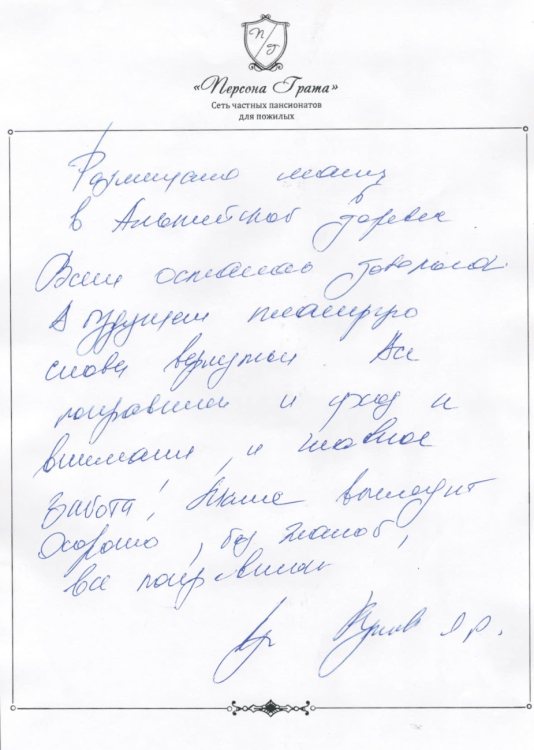 П Г
«Персона Грата»
Сеть частных пансионатов
для пожилых
Размещала маму
в Альпийской деревне
Всем осталась довольна.
В будущем планирую
снова вернуться. Ей
понравился и уход и
внимание, и главное
забота! Мама выглядит
Хорошо, без жалоб,
все понравилось